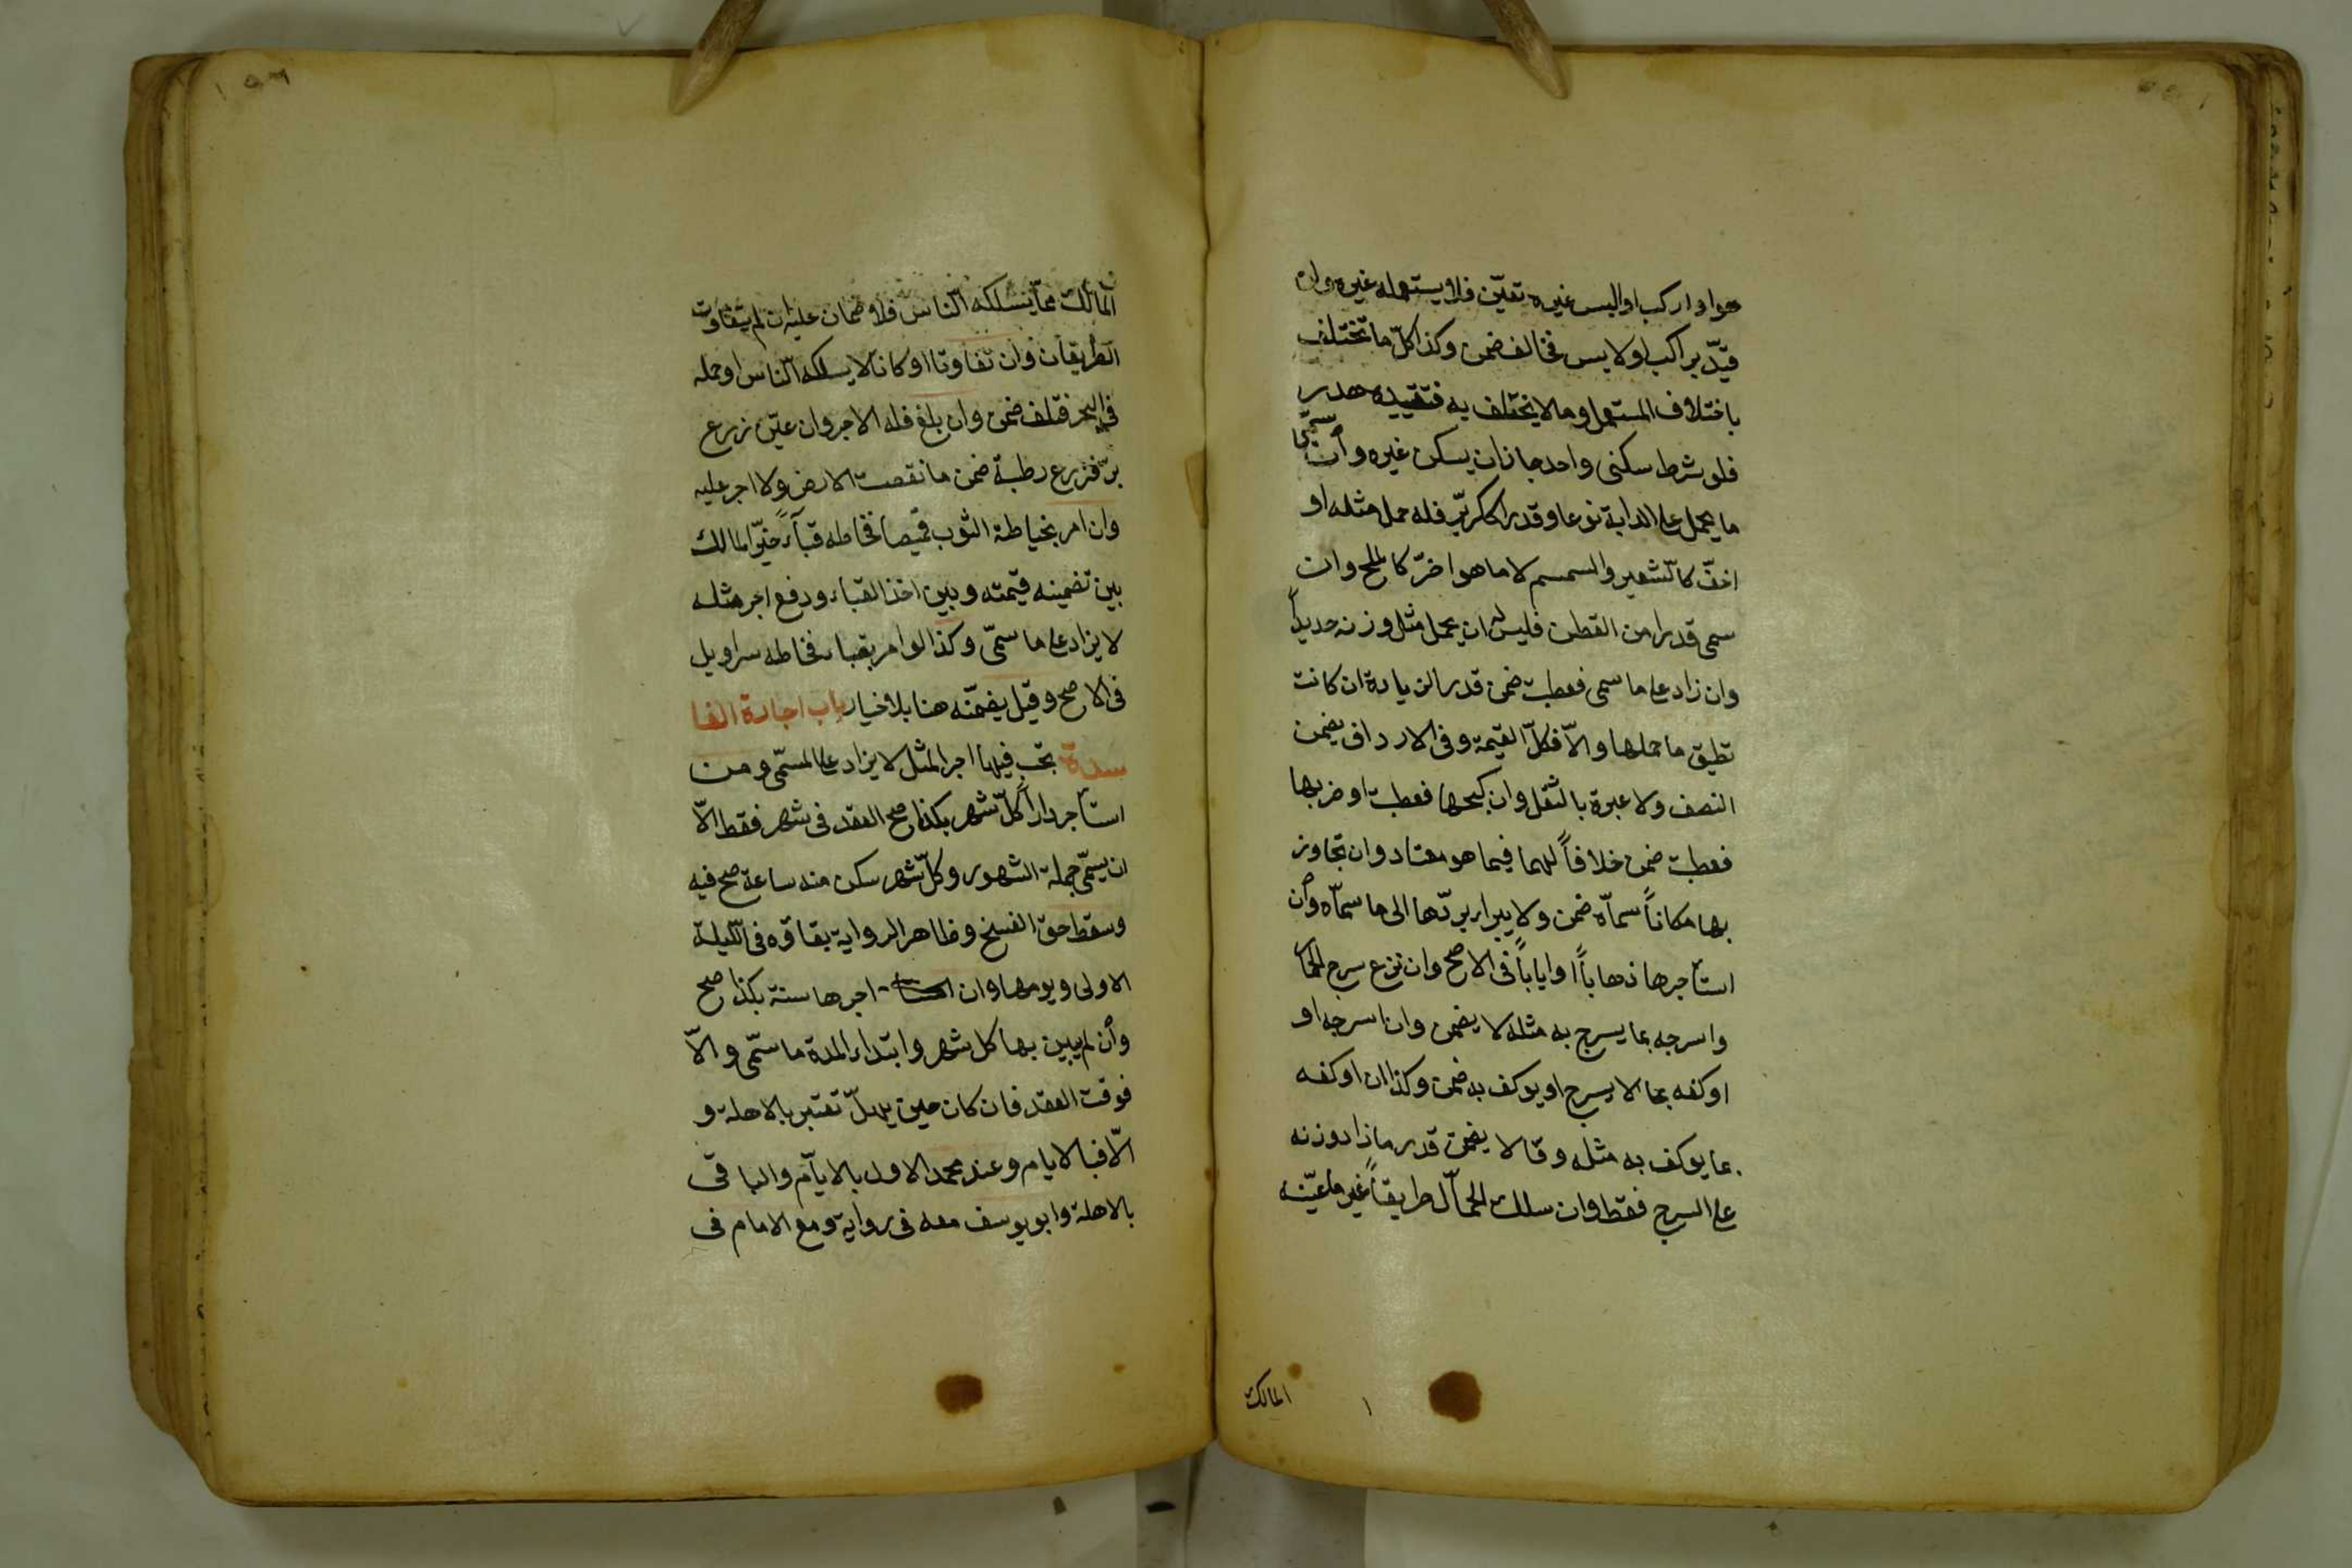 هو او اركب او البس غيره تعيّن فلا يستعمله غيره وان
قيّد براكب او لابس فخالف ضمن وكذا كلّ ما تختلف
باختلاف المستعمل وما لا يختلف به فتقييده هدر
فلو شرط سكنى واحد جاز ان يسكن غيره وأن سمّى
ما يحمل على الدابة نوعا وقدرا ككر برّ فله حمل مثله او
اخفّ كالشعير والسمسم لا ما هو اضرّ كالملح وان
سمى قدرا من القطن فليس له ان يحمل مثل وزنه حديداً
وان زاد على ما سمى فعطبت ضمن قدر الزيادة ان كانت
تطيق ما حملها والاّ فكلّ القيمة وفى الارداف يضمن
النصف ولا عبرة بالثقل وان كبحها فعطبت او ضربها
فعطبت ضمن خلافاً لهما فيما هو معتاد وان تجاوز
بها مكاناً سماّه ضمن ولا يبراء بردّها الى ما سماّه وأن
استأجرها ذهاباً او اياباً فى الاصح وان نزع سرج الحمار
واسرجه بما يسرج به مثله لا يضمن وان اسرجه او
اوكفه بما لا يسرج او يوكف به ضمن وكذا ان اوكفه
بما يوكف به مثله وقالا يضمن قدر ما زاد وزنه
على السرج فقط وان سلك الحمّال طريقاً غير ما عيّنه
المالك
١٥٣
المالك مما يسلكه النّاس فلا ضمان عليه ان لم يتفاوت
الطريقان وان تفاوتا او كان لا يسلكه النّاس او حمله
فى البحر فتلف ضمن وان بلغ فله الاجر وان عيّن زرع
برّ فزرع رطبة ضمن ما نقصت الارض ولا اجر عليه
وان امر بخياطة الثوب قميصا فخاطه قبآءً خيّر المالك
بين تضمينه قيمته وبين اخذ القباء ودفع اجر مثله
لا يزاد على ما سمّى وكذا لو امر بقباء فخاطه سراويل
فى الاصح وقيل يضمّنه هنا بلا خيار باب اجارة الفا
سدة تجب فيها اجر المثل لا يزاد على المسمّى ومن
استأجر داراً كلّ شهر بكذا صح العقد فى شهر فقط الاّ
ان يسمّى جملة الشهور وكلّ شهر سكن منه ساعة صح فيه
وسقط حق الفسخ وظاهر الرواية بقاؤه فى اللّيلة
الاولى ويومها وان اجرها سنة بكذا صح
وأن لم يبين بها كل شهر وابتداء المدة ما سمّى والاّ
فوقت العقد فان كان حين يهلّ تعتبر بالاهلة و
الاّ فبالايام وعند محمد الاول بالايّام والباقى
بالاهلة وابو يوسف معه فى رواية ومع الامام فى